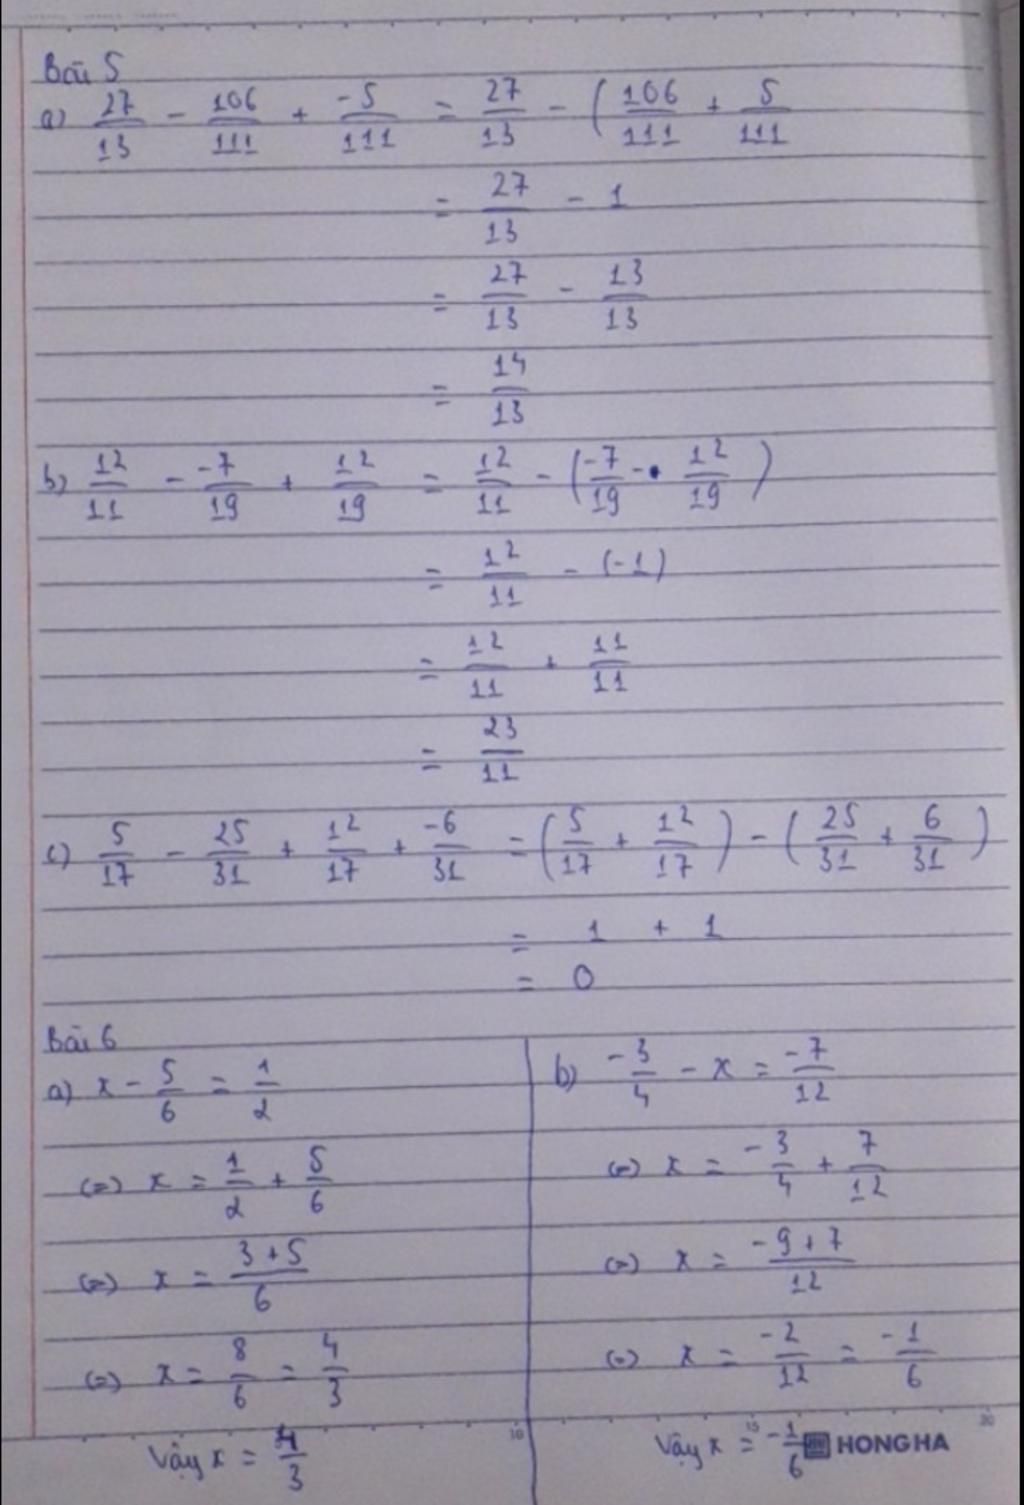 Bài 5
a) 27/13 - 106/111 + -5/111 = 27/13 - (106/111 + 5/111
= 27/13 - 1
= 27/13 - 13/13
= 14/13
b) 12/11 - -7/19 + 12/19 = 12/11 - (-7/19 - 12/19)
= 12/11 - (-1)
= 12/11 + 11/11
= 23/11
c) 5/17 - 25/31 + 12/17 + -6/31 = (5/17 + 12/17) - (25/31 + 6/31)
= 1 + 1
= 0
Bài 6
a) x - 5/6 = 1/2
(=) x = 1/2 + 5/6
(=) x = 3+5/6
(=) x = 8/6 = 4/3
Vậy x = 4/3
b) -3/4 - x = -7/12
(=) x = -3/4 + 7/12
(=) x = -9+7/12
(=) x = -2/12 = -1/6
Vậy x = -1/6
10 15 20
HONG HA